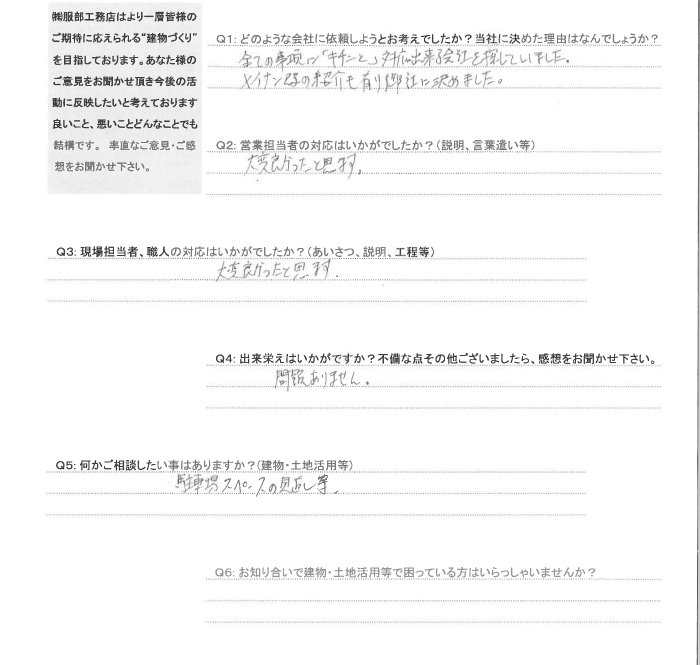 ㈱服部工務店はより一層皆様の
ご期待に応えられる“建物づくり”
を目指しております。あなた様の
ご意見をお聞かせ頂き今後の活
動に反映したいと考えております
良いこと、悪いことどんなことでも
結構です。 率直なご意見・ご感
想をお聞かせ下さい。
Q1: どのような会社に依頼しようとお考えでしたか？当社に決めた理由はなんでしょうか？
全ての事項に「キチンと」対応出来る会社を探していました。
メインバンクの紹介も有り御社に決めました。
Q2: 営業担当者の対応はいかがでしたか？(説明、言葉遣い等)
大変良かったと思います。
Q3: 現場担当者、職人の対応はいかがでしたか？(あいさつ、説明、工程等)
大変良かったと思います.
Q4: 出来栄えはいかがですか？不備な点その他ございましたら、感想をお聞かせ下さい。
問題ありません。
Q5: 何かご相談したい事はありますか？(建物・土地活用等)
駐車場スペースの見直し等.
Q6: お知り合いで建物・土地活用等で困っている方はいらっしゃいませんか？